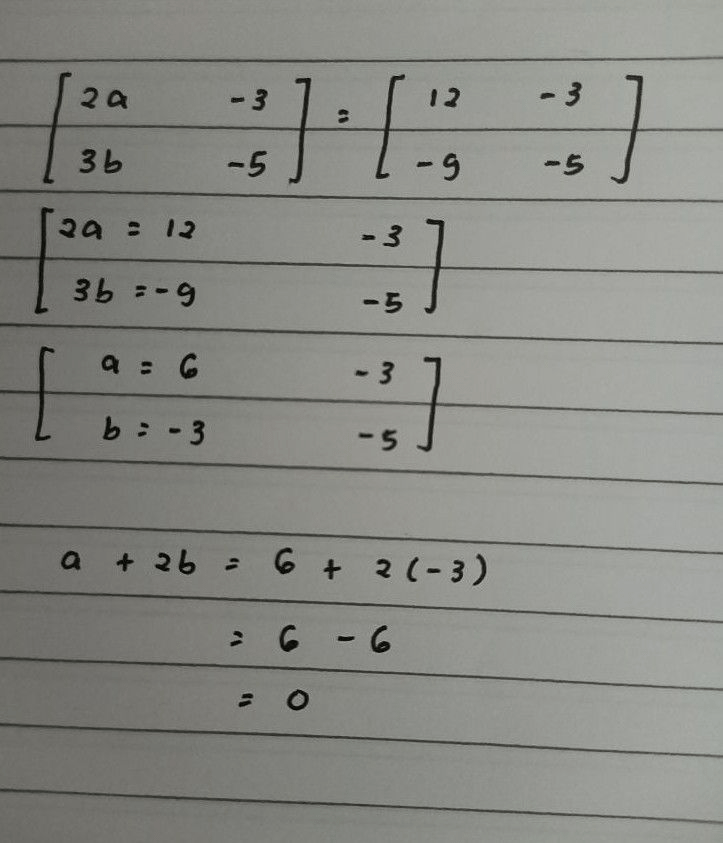 [ 2a -3 ] = [ 12 -3 ]
[ 3b -5 ] [ -9 -5 ]
[ 2a = 12 -3 ]
[ 3b = -9 -5 ]
[ a = 6 -3 ]
[ b = -3 -5 ]
a + 2b = 6 + 2(-3)
= 6 - 6
= 0